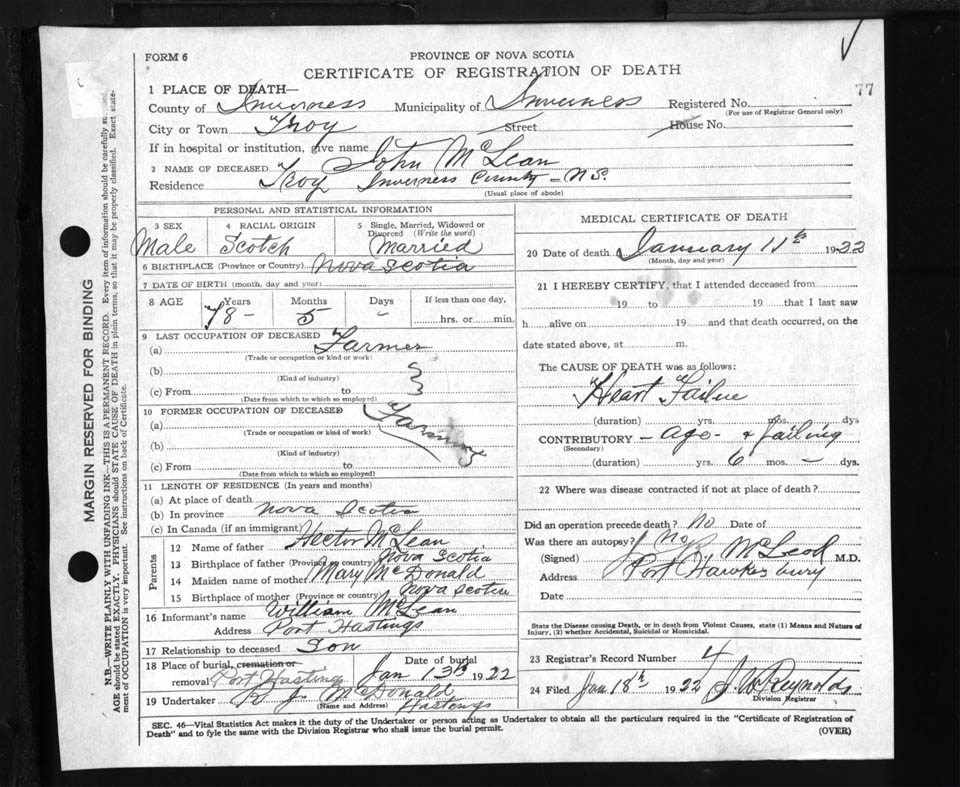 FORM 6
PROVINCE OF NOVA SCOTIA
CERTIFICATE OF REGISTRATION OF DEATH
77
1 PLACE OF DEATH—
County of Inverness Municipality of Inverness Registered No.
(For use of Registrar General only)
City or Town Troy Street House No.
If in hospital or institution, give name
2 NAME OF DECEASED John McLean
Residence Troy Inverness County - N.S.
(Usual place of abode)
PERSONAL AND STATISTICAL INFORMATION
3 SEX 4 RACIAL ORIGIN 5 Single, Married, Widowed or Divorced (Write the word)
Male Scotch Married
6 BIRTHPLACE (Province or Country) Nova Scotia
7 DATE OF BIRTH (month, day and year)
8 AGE Years Months Days If less than one day,
78 - 5 - hrs. or min.
9 LAST OCCUPATION OF DECEASED
(a) Farmer
(Trade or occupation or kind or work)
(b)
(Kind of industry)
(c) From to
(Date from which to which so employed)
10 FORMER OCCUPATION OF DECEASED
(a) Farming
(Trade or occupation or kind of work)
(b)
(Kind of industry)
(c) From to
(Date from which to which so employed)
11 LENGTH OF RESIDENCE (In years and months)
(a) At place of death
(b) In province Nova Scotia
(c) In Canada (if an immigrant)
Parents
12 Name of father Hector McLean
13 Birthplace of father (Province or country) Nova Scotia
14 Maiden name of mother Mary McDonald
15 Birthplace of mother (Province or country) Nova Scotia
16 Informant's name William McLean
Address Port Hastings
17 Relationship to deceased Son
18 Place of burial, cremation or removal Port Hastings Date of burial Jan 13th 1922
19 Undertaker McDonald
(Name and Address) Hastings
MEDICAL CERTIFICATE OF DEATH
20 Date of death January 11th 1922
(Month, day and year)
21 I HEREBY CERTIFY, that I attended deceased from
19 to 19 that I last saw
h alive on 19 and that death occurred, on the
date stated above, at m.
The CAUSE OF DEATH was as follows:
Heart Failue
(duration) yrs. mos. dys
CONTRIBUTORY - age - & failing
(Secondary)
(duration) yrs. 6 mos. - dys.
22 Where was disease contracted if not at place of death?
Did an operation precede death? No Date of
Was there an autopsy? No
(Signed) McLeod M.D.
Address Port Hawkesbury
Date
State the Disease causing Death, or in death from Violent Causes, state (1) Means and Nature of
Injury, (2) whether Accidental, Suicidal or Homicidal.
23 Registrar's Record Number 4
24 Filed Jan 18th 1922 Reynolds
Division Registrar
SEC. 46—Vital Statistics Act makes it the duty of the Undertaker or person acting as Undertaker to obtain all the particulars required in the "Certificate of Registration of
Death" and to fyle the same with the Division Registrar who shall issue the burial permit.
(OVER)
MARGIN RESERVED FOR BINDING
N.B.—WRITE PLAINLY WITH UNFADING INK—THIS IS A PERMANENT RECORD. Every item of information should be carefully
AGE should be stated EXACTLY. PHYSICIANS should STATE CAUSE OF DEATH in plain terms, so that it may be properly classified. Exact state-
ment of OCCUPATION is very important. See instructions on back of Certificate.